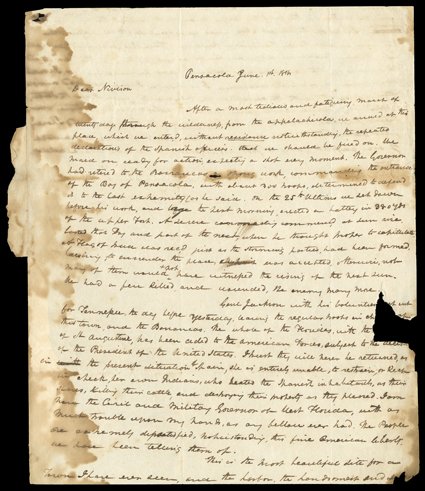 Pensacola June 1st 1818
Dear Newison
After a most tedious and fatiguing march of
twenty days through the wilderness, from the appalachicola, we arrived at this
place, which we entered, without resistance notwithstanding, the repeated
declarations of the Spanish officers, that we should be fired on. We
were on ready for action, expecting a shot every moment. The Governor
had retired to the Barancas a strong work, commanding the entrance
of the Bay of Pensacola, with about 300 troops, determined to defend
it to the last extremity (as he said. On the 25th Ultimo we set down
before his work, and by next morning erected a battery in 380 yds
of the upper Fort. A severe cannonading commenced at sun rise
lasted that day and part of the next, when he thought proper to capitulate
A Flag of truce was rec'd just as the storming parties had been formed.
Evening to surrender the place, was accepted, otherwise, not
many of them would have witnessed the rising of the next sun.
We had a few killed and wounded, the enemy many more
Genl Jackson with his volunteers set out
for Tennessee the day before yesterday, leaving the regular troops in
this town and the Barrancas. The whole of the Floridas, with the
of St Augustine has been ceded to the american Forces, subject to the
of the President of the United States. I trust they will never be returned, as
in the present situation of Spain, she is entirely unable, to restrain, or keep
in check, her own Indians, who hated the Spanish inhabitants, as their
slaves, killing their cattle and destroying their property as they pleased. I am
now the Civil and Military Governor of West Florida, with as
much trouble upon my hands, as any fellow ever had. The People
are extremely dissatisfied, notwithstanding, the fine American liberty
we have been telling them of.
This is the most beautiful site for a
Town I have ever seen, and the harbor, the handsomest and